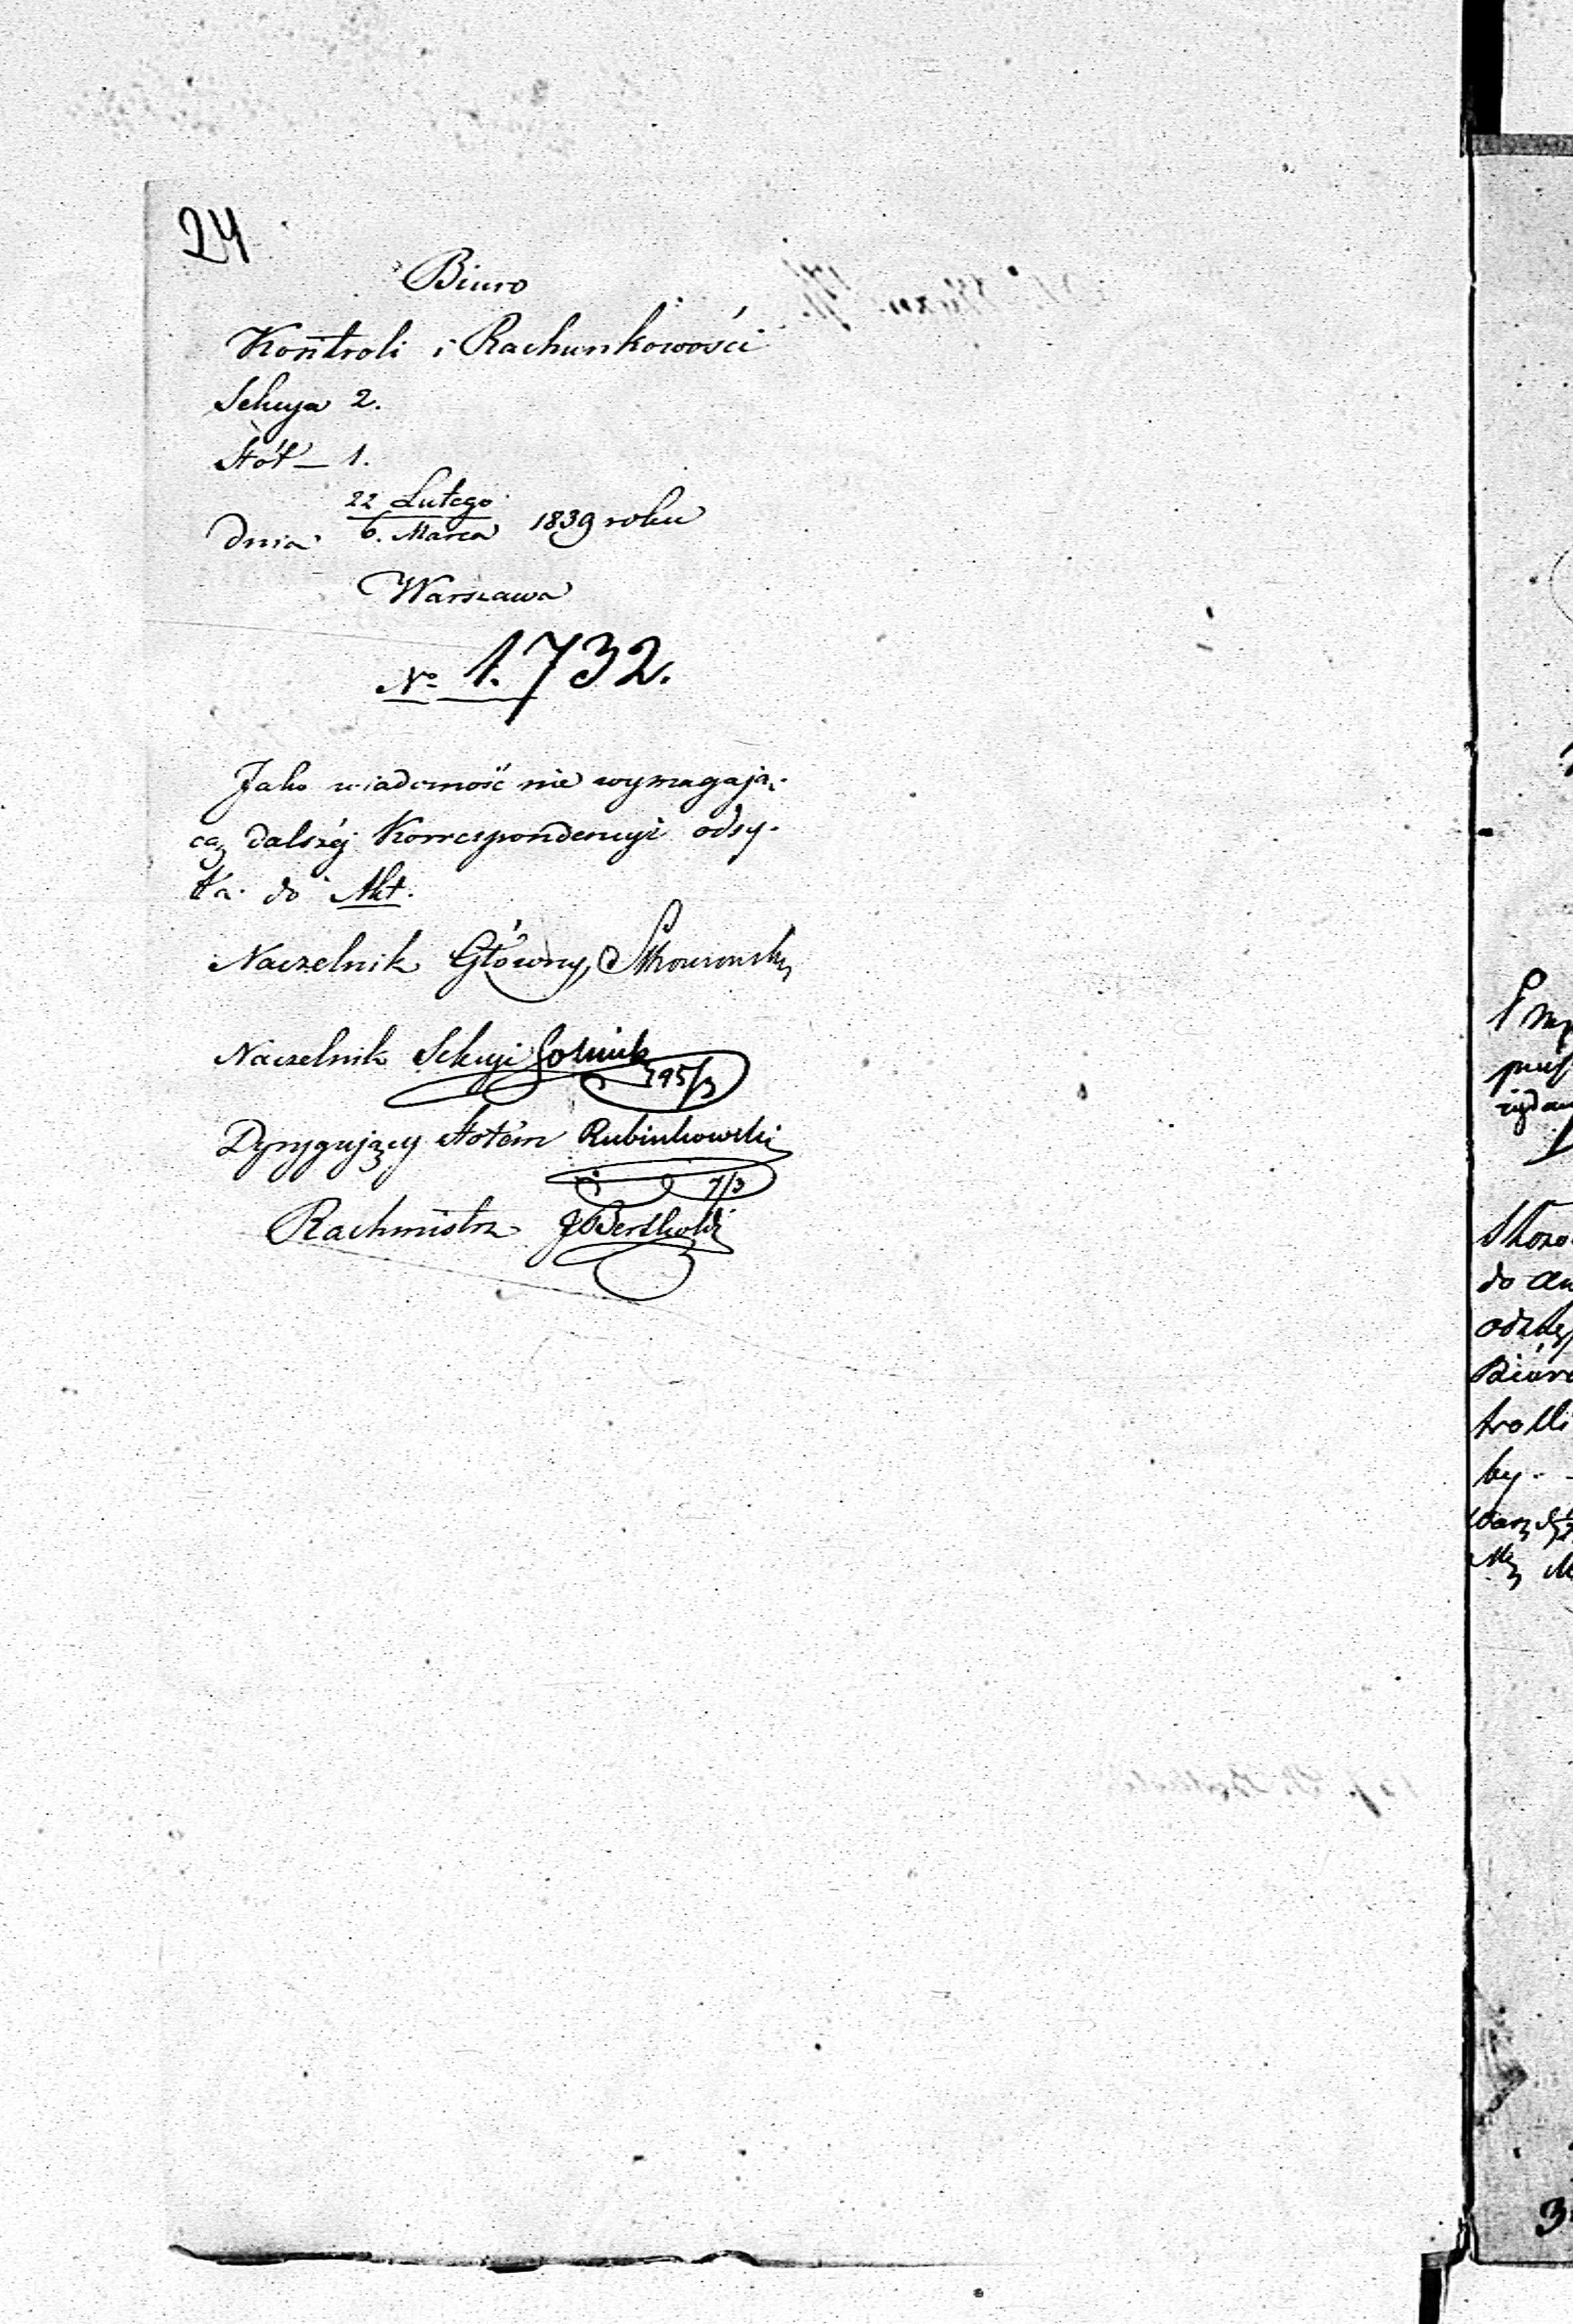 24
Biuro
Kontroli i Rachunkowości
Sekcya 2.
Stół — 1.
22 Lutego
Dnia 6. Marca 1839 roku
Warszawa
No 1.732.
Jako wiadomość nie wymagają-
cą dalszéj Korrespondencyi odsy-
ła do Akt.
Naczelnik Główny,
Naczelnik Sekcyi
Dyrygujący Stołem Rubinkowski
7/3
Rachmistrz J Berthold
do